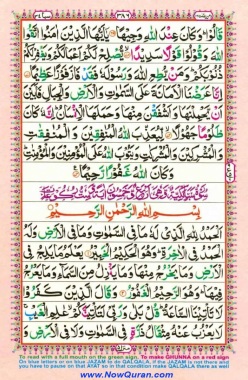 قَالُوْا ؕ وَكَانَ عِنْدَ اللّٰهِ وَجِيْهًا ۝ يٰۤاَيُّهَا الَّذِيْنَ اٰمَنُوا اتَّقُوا
اللّٰهَ وَقُوْلُوْا قَوْلًا سَدِيْدًا ۝ يُّصْلِحْ لَكُمْ اَعْمَالَكُمْ وَيَغْفِرْ لَكُمْ
ذُنُوْبَكُمْ ؕ وَمَنْ يُّطِعِ اللّٰهَ وَرَسُوْلَهٗ فَقَدْ فَازَ فَوْزًا عَظِيْمًا ۝
اِنَّا عَرَضْنَا الْاَمَانَةَ عَلَى السَّمٰوٰتِ وَالْاَرْضِ وَالْجِبَالِ فَاَبَيْنَ
اَنْ يَّحْمِلْنَهَا وَاَشْفَقْنَ مِنْهَا وَحَمَلَهَا الْاِنْسَانُ ؕ اِنَّهٗ كَانَ
ظَلُوْمًا جَهُوْلًا ۝ لِّيُعَذِّبَ اللّٰهُ الْمُنٰفِقِيْنَ وَالْمُنٰفِقٰتِ
وَالْمُشْرِكِيْنَ وَالْمُشْرِكٰتِ وَيَتُوْبَ اللّٰهُ عَلَى الْمُؤْمِنِيْنَ وَالْمُؤْمِنٰتِ ؕ
وَكَانَ اللّٰهُ غَفُوْرًا رَّحِيْمًا ۝
بِسْمِ اللّٰهِ الرَّحْمٰنِ الرَّحِيْمِ
اَلْحَمْدُ لِلّٰهِ الَّذِيْ لَهٗ مَا فِي السَّمٰوٰتِ وَمَا فِي الْاَرْضِ وَلَهُ
الْحَمْدُ فِي الْاٰخِرَةِ ؕ وَهُوَ الْحَكِيْمُ الْخَبِيْرُ ۝ يَعْلَمُ مَا يَلِجُ فِي
الْاَرْضِ وَمَا يَخْرُجُ مِنْهَا وَمَا يَنْزِلُ مِنَ السَّمَآءِ وَمَا يَعْرُجُ
فِيْهَا ؕ وَهُوَ الرَّحِيْمُ الْغَفُوْرُ ۝ وَقَالَ الَّذِيْنَ كَفَرُوْا
لَا تَاْتِيْنَا السَّاعَةُ ؕ قُلْ بَلٰى وَرَبِّيْ لَتَاْتِيَنَّكُمْ ۙ عٰلِمِ الْغَيْبِ ۚ
لَا يَعْزُبُ عَنْهُ مِثْقَالُ ذَرَّةٍ فِي السَّمٰوٰتِ وَلَا فِي الْاَرْضِ وَلَاۤ
To read with a full mouth on the green sign, To make GHUNNA on a red sign
On blue letters or on blue JAZAM to do QALQALA, if the JAZAM is not there and
you have to pause on that AYAT so in that condition make QALQALA on there also
www.NowQuran.com